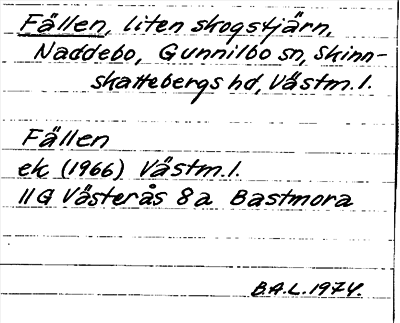 Fällen, liten skogstjärn,
Naddebo, Gunnilbo sn, Skinn-
skattebergs hd, Västm.l.
Fällen
ek (1966) Västm.l.
11G Västerås 8a Bastmora
B.A.L. 1974.